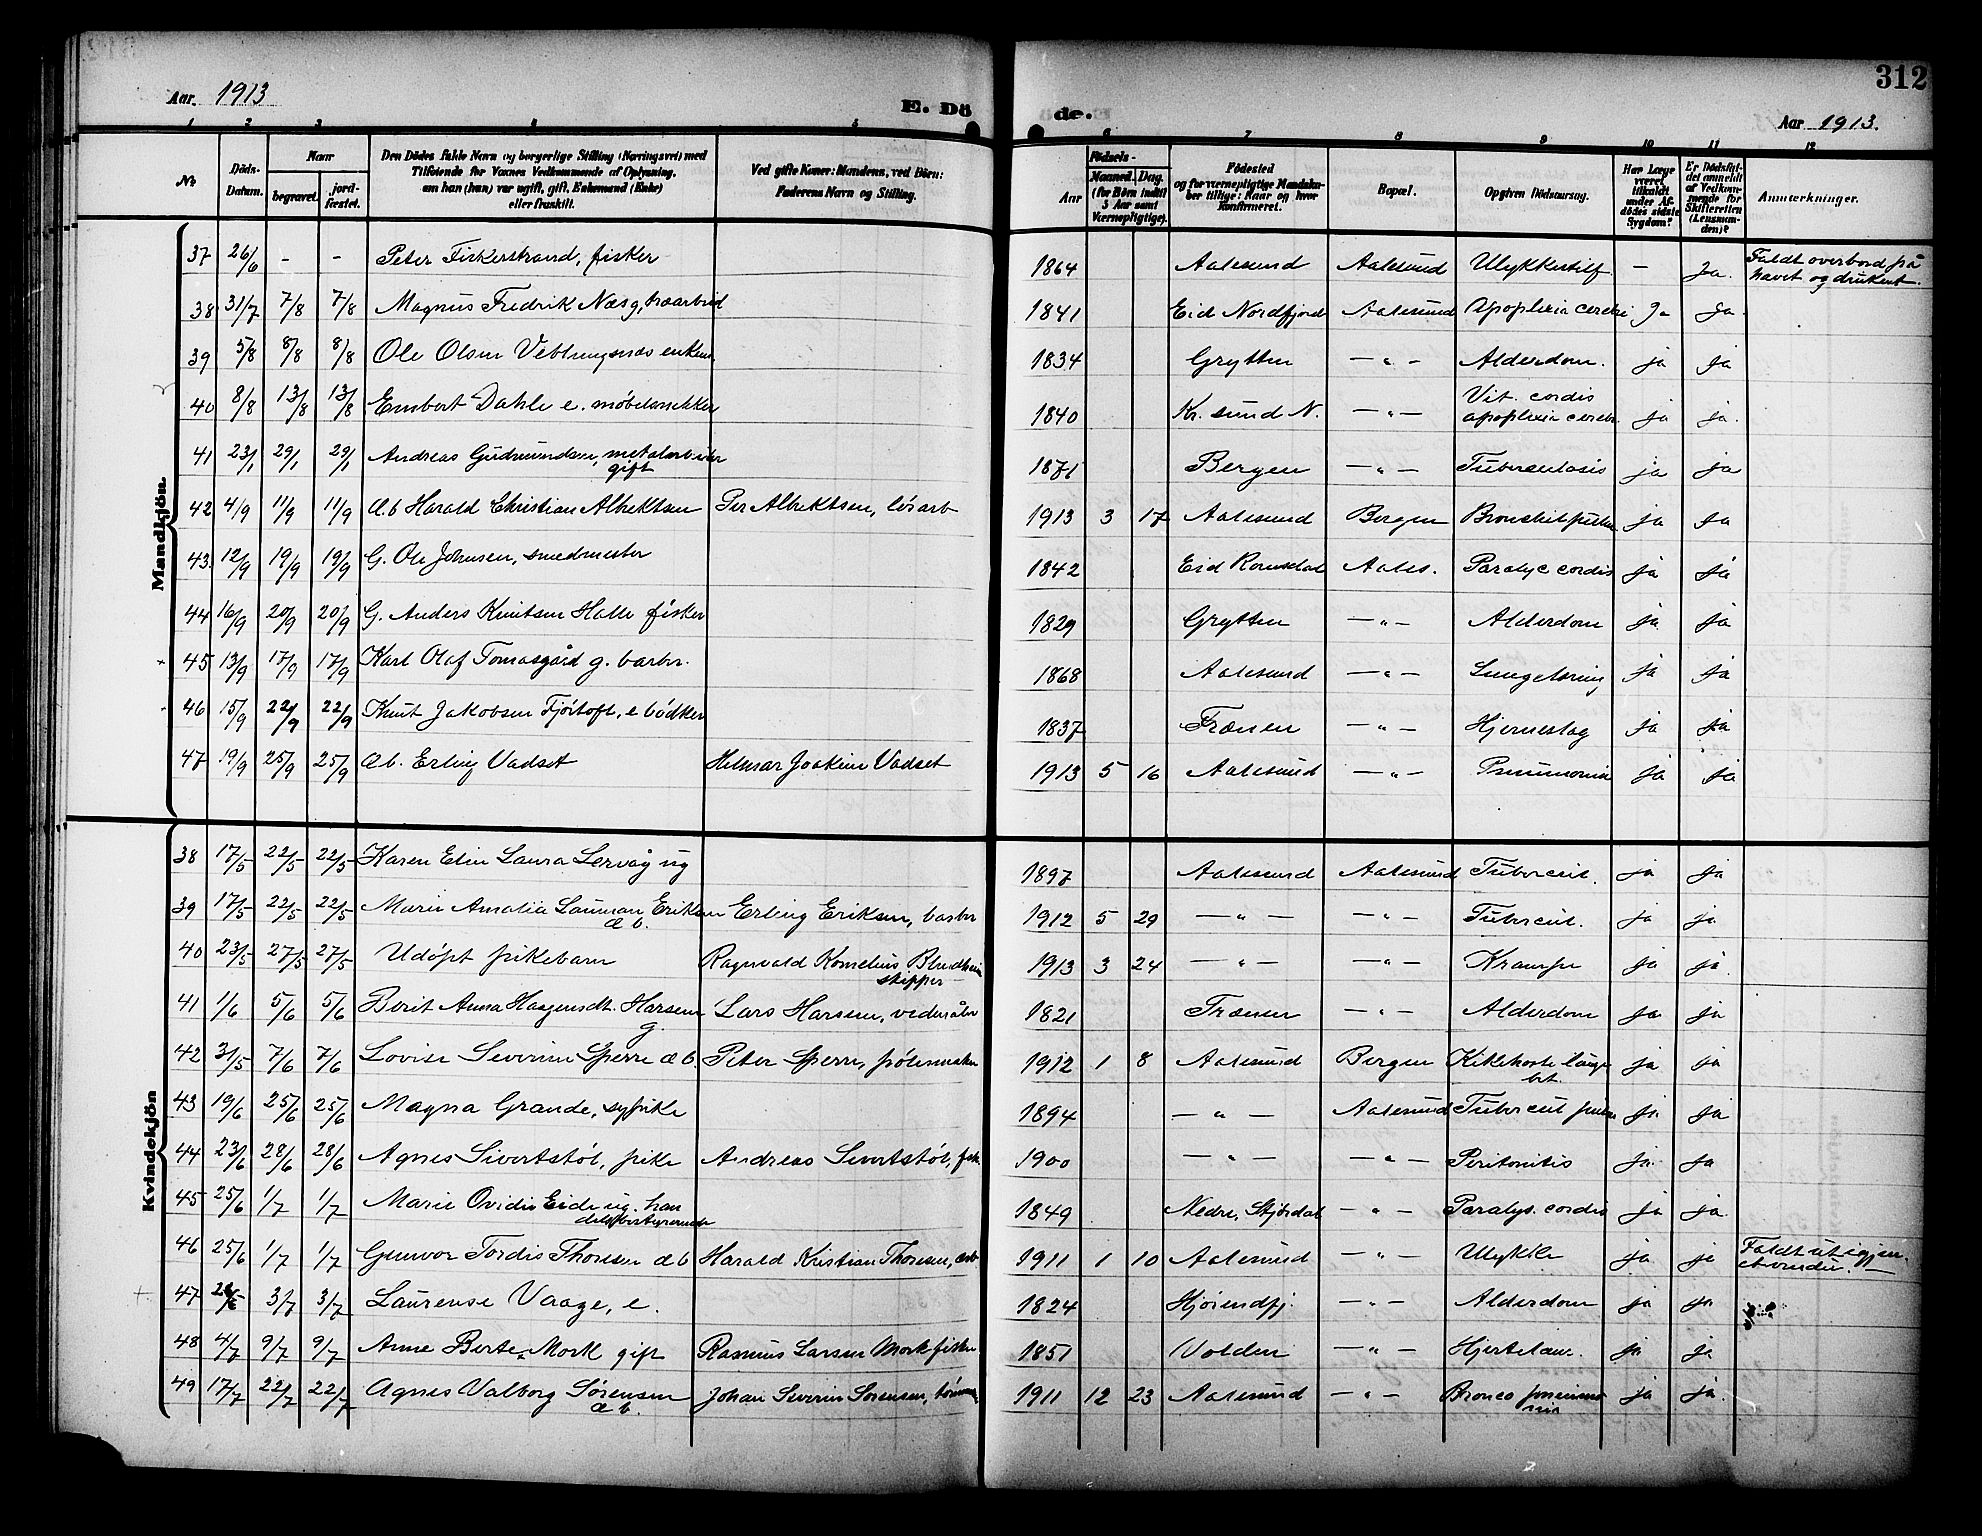 312
Aar 1913
E. Döde.
Aar 1913.
1 2 3 4 5 6 7 8 9 10 11 12
No
Döds-Datum.
Naar
begravet. jordfæstet.
Den Dödes fulde Navn og borgerlige Stilling (Næringsvei) med
Tilföiende for Voxnes Vedkommende af Oplysning,
om han (hun) var ugift, gift, Enkemand (Enke)
eller fraskilt.
Ved gifte Koner: Mandens, ved Börn:
Faderens Navn og Stilling.
Födsels-
Aar
Maaned. Dag.
(for Börn indtil 3 Aar samt Værnepligtige).
Födested
og for værnepligtige Mandskaber tillige: Naar og hvor Konfirmeret.
Bopæl.
Opgiven Dödsaarsag.
Har Læge været tilkaldt under Afdödes sidste Sygdom?
Er Dödsfaldet anmeldt af Vedkommende for Skifteretten (Lensmanden)?
Anmærkninger.
Mandkjön.
37 26/6 - - Peter Fiskerstrand, fisker 1864 Aalesund Aalesund Ulykkestilf - Ja. Faldt overbord på havet og druknet.
38 31/7 7/8 7/8 Magnus Fredrik Næs g, 1841 Eid Nordfjord Aalesund Apoplexia cerebri Ja Ja.
39 5/8 8/8 8/8 Ole Olsen Veblungsnæs enkem 1834 Grytten — " — Alderdom. ja ja
40 8/8 13/8 13/8 Embert Dahle e. møbelsnekker 1840 Kr. sund N. — " — Vit. cordis apoplexia cerebr. ja ja.
41 23/1 29/1 29/1 Andreas Gudmundsen, metalarbeider gift 1871 Bergen — " — Tuberculosis ja ja
42 4/9 11/9 11/9 Æ.b Harald Christian Albrektsen Per Albrektsen, løsarb 1913 3 17 Aalesund Bergen ja Ja
43. 12/9 19/9 19/9 G. Ole Johnsen, smedmester 1842 Eid Romsdal Aales. Paralyc cordis ja ja
44 16/9 20/9 20/9 G. Anders Knutsen Halle fisker 1829 Grytten — " — Alderdom ja. ja
45 13/9 17/9 17/9 Karl Olaf Tomasgård g. barber. 1868 Aalesund — " — Lungetæring ja ja
46 15/9 22/9 22/9 Knut Jakobsen Fjörtoft, e bödker 1837 Frænen — " — Hjerneslag ja ja
47 19/9 25/9 25/9 Æb. Erling Vadset Helmar Joakim Vadset 1913 5 16 Aalesund — " — Pneumonia ja ja
Kvindekjön
38 17/5 22/5 22/5 Karen Elin Laura Lervåg ug 1897 Aalesund Aalesund Tubercul. ja ja
39 17/5 22/5 22/5 Marie Amalia Lauman Eriksen æ b. Erling Eriksen, barber 1912 5 29 — " — — " — Tubercul. ja ja
40 23/5 27/5 27/5 Udöpt pikebarn Ragnvald Kornelius Blindheim skipper 1913 3 24 — " — — " — Krampe ja ja.
41 1/6 5/6 5/6 Berit Anna Haagensdt. Harsem g. Lars Harsem, vedmåler 1821 Frænen — " — Alderdom ja ja
42 31/5 7/6 7/6 Lovise Severine Sperre æ b. Peter Sperre, pølsemaker 1912 1 8 Aalesund Bergen Kikhoste lungebet. ja ja
43 19/6 25/6 25/6 Magna Grande, sypike 1894 — " — Aalesund Tubercul pulm ja. ja
44 23/6 28/6 28/6 Agnes Sivertstøl, pike Andreas Sivertstøl, fisk 1900 — " — — " — Peritonitis ja. ja
45 25/6 1/7 1/7 Marie Ovidia Eide ug. handelsbestyrerinde 1849 Nedre, Stjørdal — " — Paralys. cordis ja ja.
46 25/6 1/7 1/7 Gunvor Tordis Thoresen æ b Harald Kristian Thoresen, arb 1911 1 10 Aalesund — " — Ulykke ja. ja Faldt ut igjen. et vindu.
47 3/7 3/7 Laurense Vaage, e. 1824 Hjørendfj. — " — Alderdom ja ja
48 4/7 9/7 9/7 Anne Berte Mork gift Rasmus Larsen Mork fisker 1851 Volden — " — ja ja
49 17/7 22/7 22/7 Agnes Valborg Sørensen æ b. Johan Severin Sørensen, 1911 12 23 Aalesund — " — Bronco pneumonia ja ja.